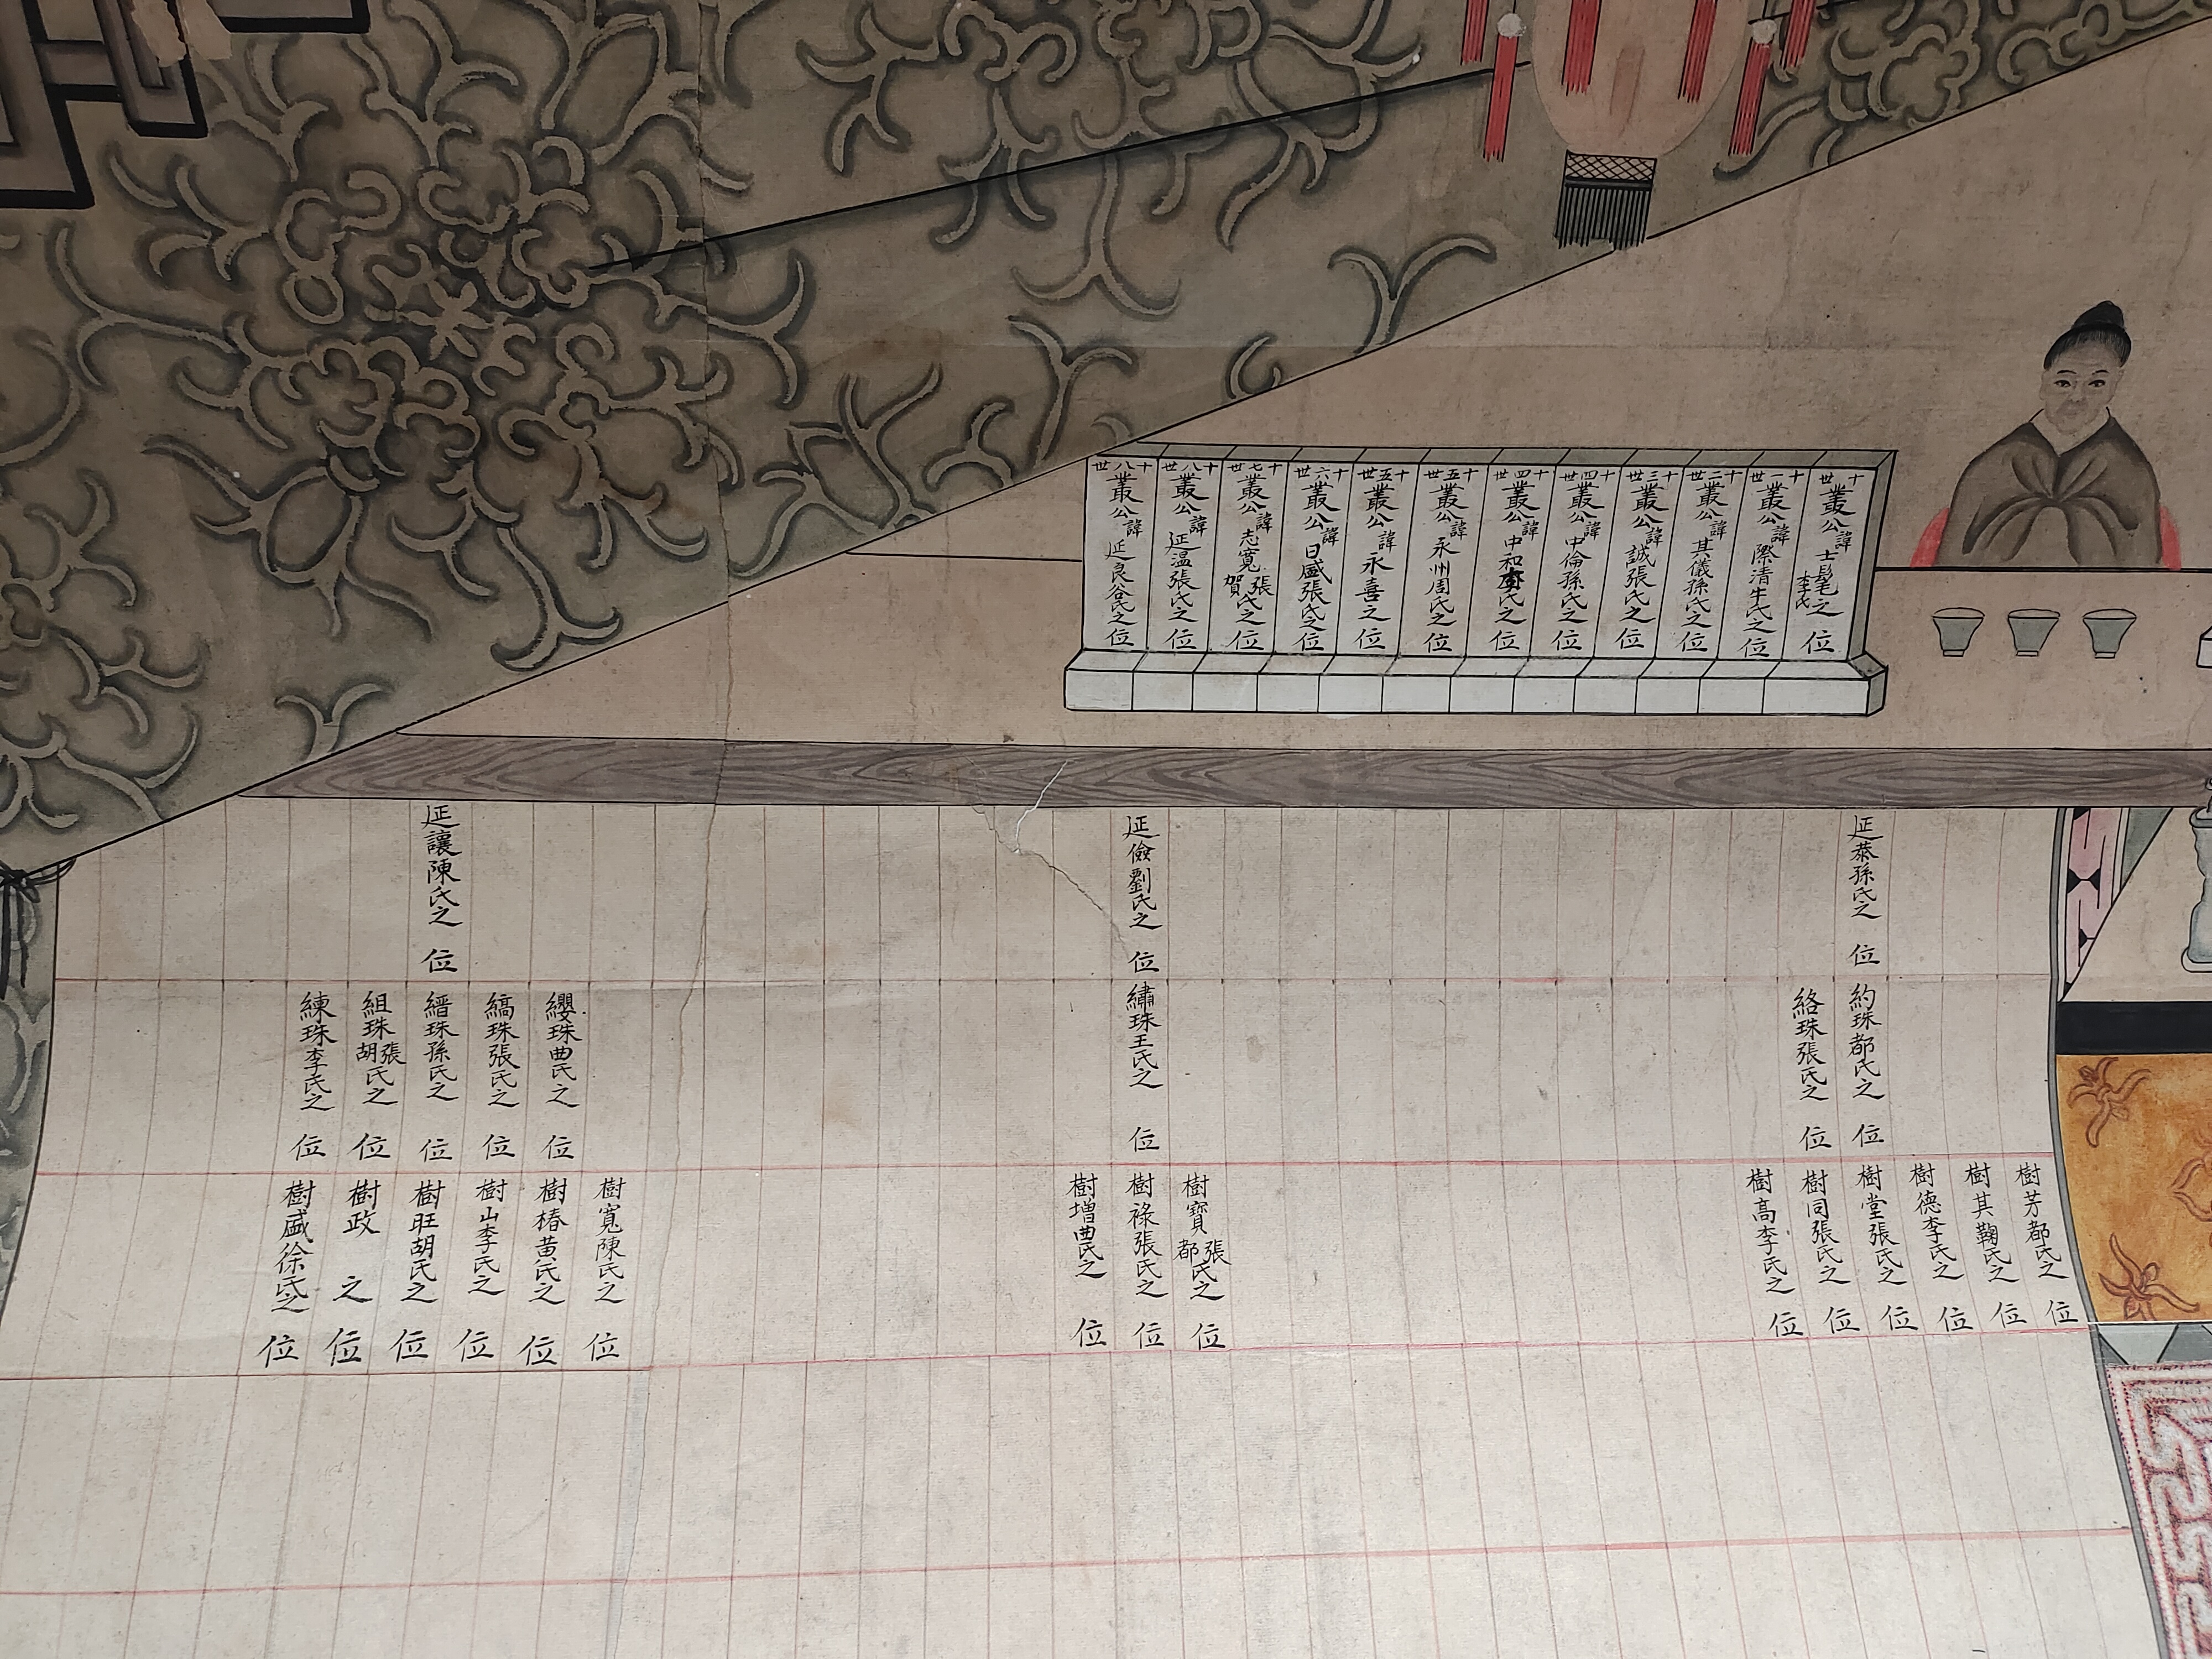 十世叢公諱士髦李氏之位
十一世叢公諱際清牛氏之位
十二世叢公諱其儀孫氏之位
十三世叢公諱誠張氏之位
十四世叢公諱中倫孫氏之位
十四世叢公諱中和李氏之位
十五世叢公諱永州周氏之位
十五世叢公諱永喜之位
十六世叢公諱日盛張氏之位
十七世叢公諱志寬張賀氏之位
十八世叢公諱延溫張氏之位
十八世叢公諱延良谷氏之位
延恭孫氏之位
延儉劉氏之位
延讓陳氏之位
約珠都氏之位
絡珠張氏之位
繡珠王氏之位
纓珠曲氏之位
縞珠張氏之位
縉珠孫氏之位
組珠張胡氏之位
練珠李氏之位
樹芳都氏之位
樹其鞠氏之位
樹德李氏之位
樹堂張氏之位
樹同張氏之位
樹高李氏之位
樹寶張都氏之位
樹祿張氏之位
樹增曲氏之位
樹寬陳氏之位
樹椿黃氏之位
樹山李氏之位
樹旺胡氏之位
樹政之位
樹盛徐氏之位